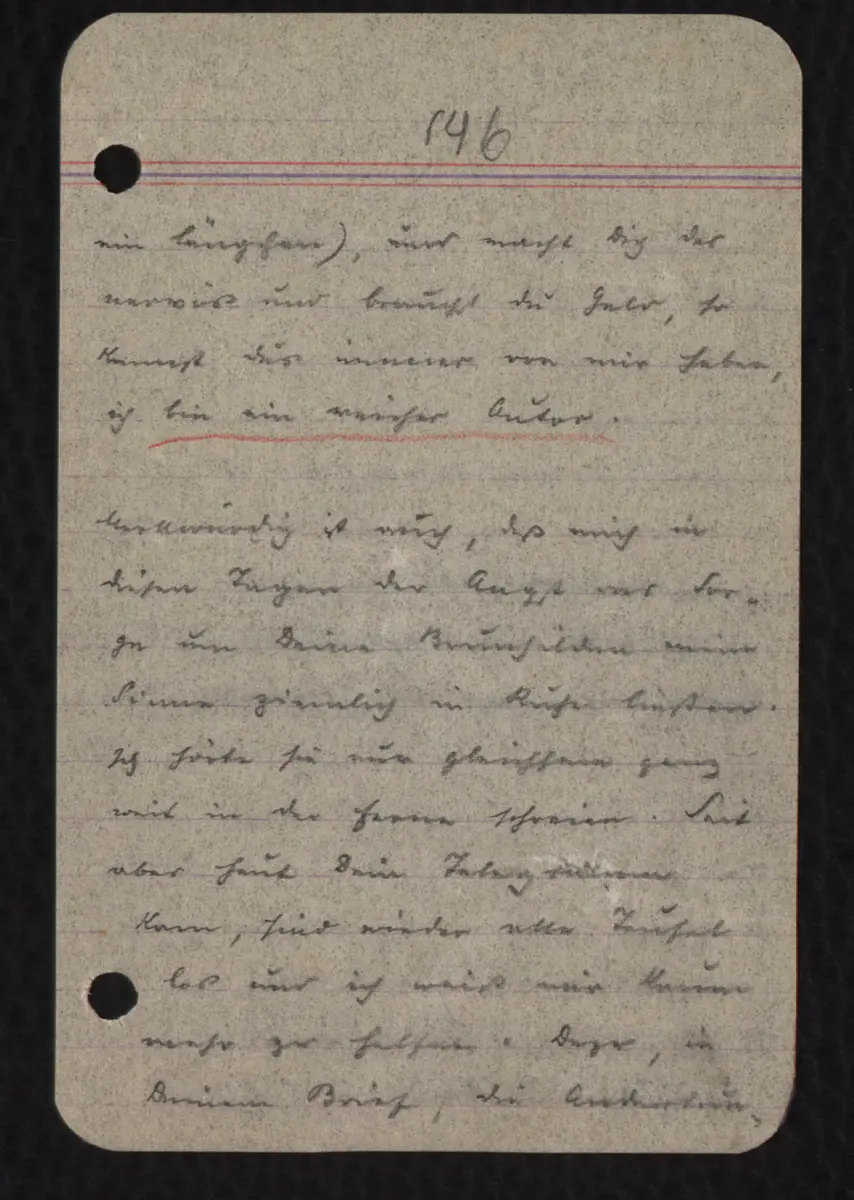 146
ein bängchen), und macht Dig das
nervös und brauchst du Geld, so
kannst Du's immer von mir haben,
ich bin ein reicher Autor.
Merkwürdig ist auch, daß mich in
diesen Tagen der Angst und Sor-
ge um Deine Brunhilden meine
Sinne ziemlich in Ruhe ließen.
Ich hörte sie nur gleichsam ganz
weit in der Ferne schreien. Seit
aber heut Dein Telegramm
kam, sind wieder alle Teufel
los und ich weiß mir kaum
mehr zu helfen. Dazu, in
Deinem Brief, die Andeutun-